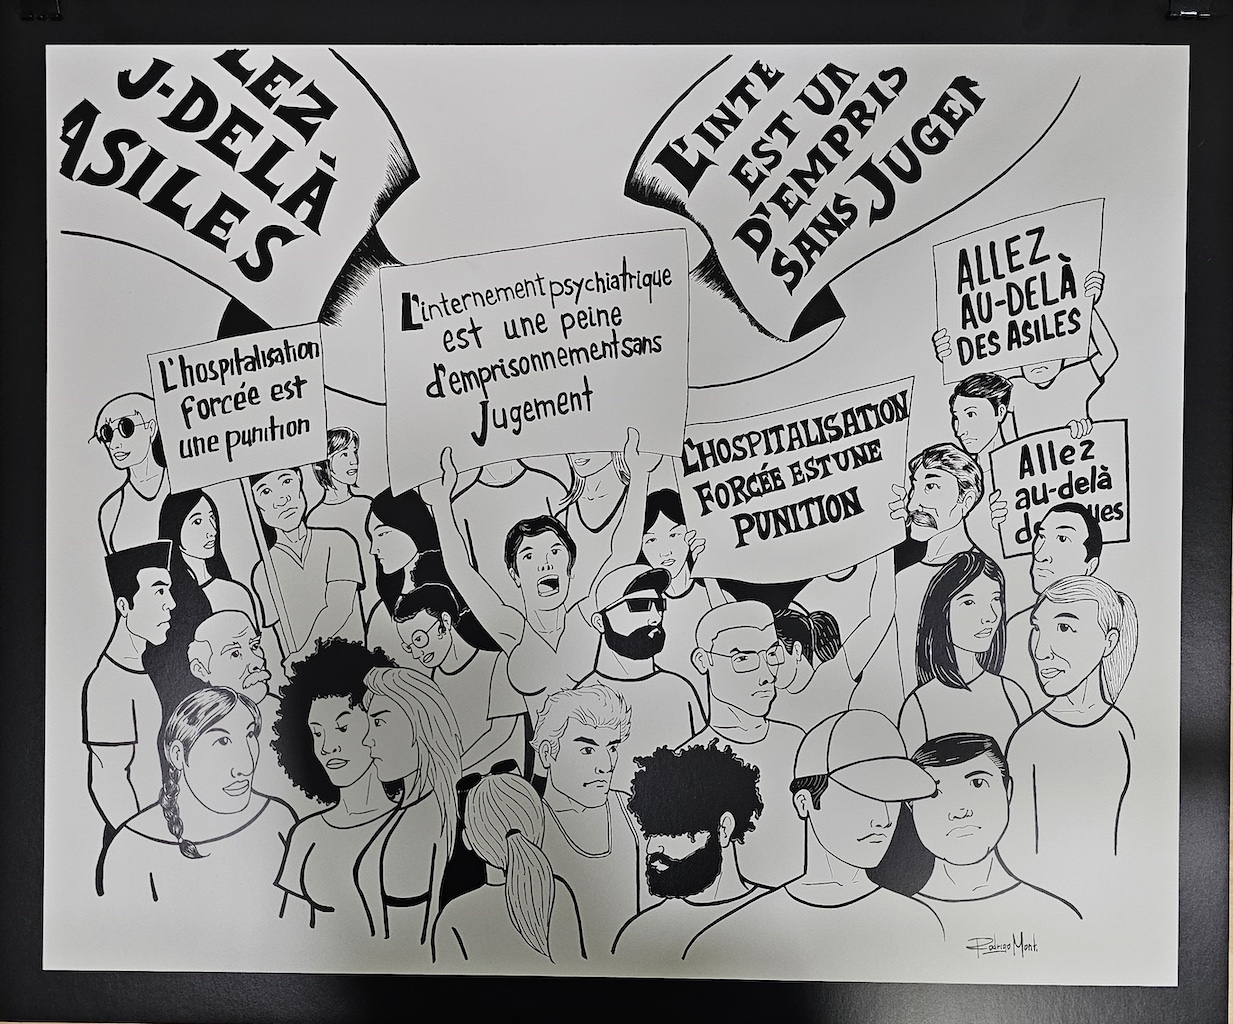 LEZ
U-DELÀ
ASILES
L'INTE
EST UN
D'EMPRIS
SANS JUGEM
L'internement psychiatrique
est une peine
d'emprisonnement sans
Jugement
L'hospitalisation
forcée est
une punition
L'HOSPITALISATION
FORCÉE EST UNE
PUNITION
ALLEZ
AU-DELÀ
DES ASILES
Allez
au-delà
de ues
Rodrigo Mont.